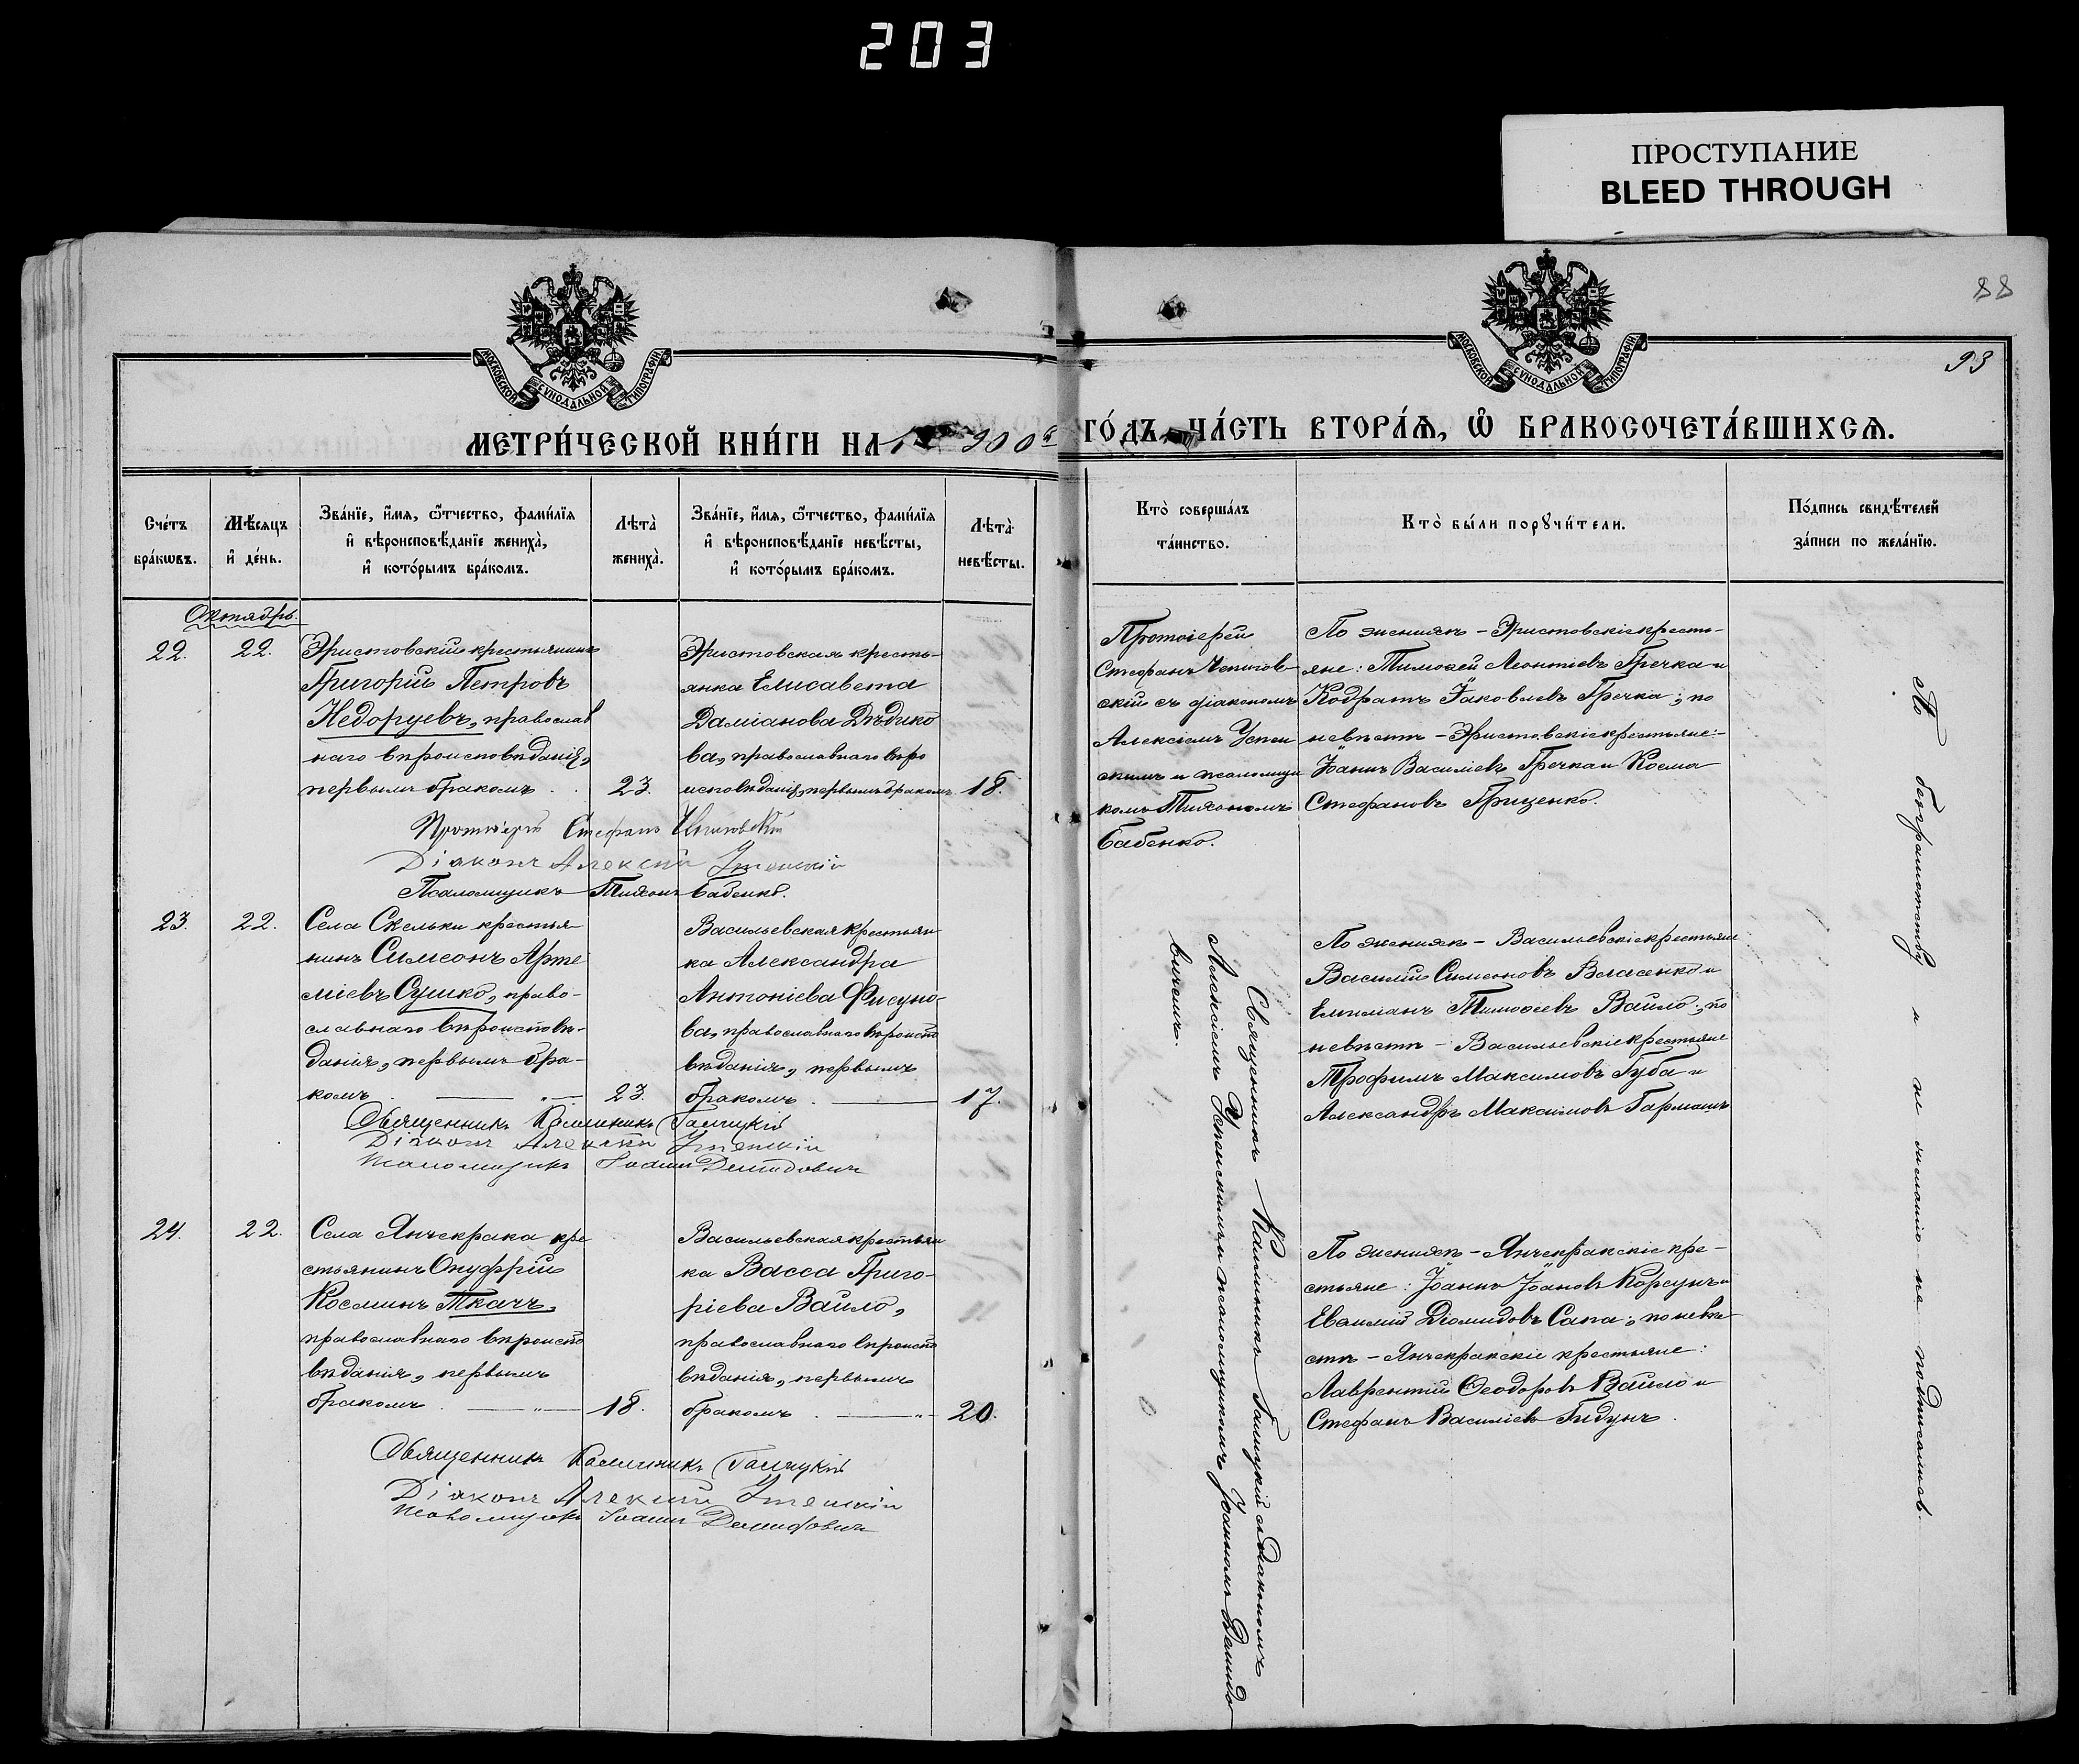 203
ПРОСТУПАНИЕ
BLEED THROUGH
88
93
МОСКОВСКОЙ СУНОДАЛЬНОЙ ТИПОГРАФІИ
МОСКОВСКОЙ СУНОДАЛЬНОЙ ТИПОГРАФІИ
МЕТРИ́ЧЕСКОЙ КНИ́ГИ НА 1900й ГО́ДЪ, ЧА́СТЬ ВТОРА́Ѧ, Ѡ҆ БРАКОСОЧЕТА́ВШИХСѦ.
Сче́тъ
бра́кѡвъ.
Мѣ́сяцъ
и҆ де́нь.
Зва́нїе, и҆́мѧ, ѻ҆́тчество, фами́лїѧ
и҆ вѣроисповѣ́данїе жениха̀,
и҆ кото́рымъ бра́комъ.
Лѣта̀
жениха̀.
Зва́нїе, и҆́мѧ, ѻ҆́тчество, фами́лїѧ
и҆ вѣроисповѣ́данїе невѣ́сты,
и҆ кото́рымъ бра́комъ.
Лѣта̀
невѣ́сты.
Кто̀ соверша́лъ
та́инство.
Кто̀ бы́ли порꙋчи́тели.
По́дпись свидѣ́телей
за́писи по жела́нїю.
Октябрь.
22.
22.
Эристовскій крестьянинъ
Григорій Петровъ
Недоруевъ, православ
наго вѣроисповѣданія,
первымъ бракомъ
23.
Эристовская кресть-
янка Елисавета
Даміанова Дѣдико
ва, православнаго вѣро
исповѣданія, первымъ бракомъ
18.
Протоіерей
Стефанъ
скій съ діакономъ
Алексіемъ Успен
скимъ и псаломщи
комъ Тихономъ
Бабенко.
По женихѣ – Эристовскіе кресть-
яне: Тимоѳей Леонтіевъ Гречка и
Кодратъ Іаковлевъ Гречка; по
невѣстѣ – Эристовскіе крестьяне:
Іоаннъ Василіевъ Гречка и Косма
Стефановъ Гриценко.
Протоіерей Стефанъ
Діаконъ Алексій Успенскій
Псаломщикъ Тихонъ Бабенко.
23.
22.
Села Скельки крестья
нинъ Симеонъ Арте
міевъ Сушко, право-
славнаго вѣроисповѣ-
данія, первымъ бра-
комъ
23.
Васильевская крестьян
ка Александра
Антоніева Фисуно-
ва, православнаго вѣроиспо
вѣданія, первымъ
бракомъ
17.
По женихѣ – Васильевскіе крестьяне
Василій Симеоновъ Власенко и
Емиліанъ Тимоѳеевъ Вайло; по
невѣстѣ – Васильевскіе крестьяне
Трофимъ Максимовъ Губа и
Александръ Максимовъ Гармашъ
Священникъ Каллиникъ Галицкій
Діаконъ Алексій Успенскій
Псаломщикъ Іоаннъ Демидовичъ
24.
22.
Села Янчекрака кре
стьянинъ Онуфрій
Косминъ Ткачъ,
православнаго вѣроиспо
вѣданія, первымъ
бракомъ
18.
Васильевская крестьян
ка Васса Григо-
ріева Вайло,
православнаго вѣроиспо
вѣданія, первымъ
бракомъ
20.
По женихѣ – Янчекракскіе кре-
стьяне: Іоаннъ Іоановъ Корсунъ и
Евѳимій Діомидовъ Сапа; по невѣ
стѣ – Янчекракскіе крестьяне:
Лаврентій Ѳеодоровъ Вайло и
Стефанъ Василіевъ Гидунъ.
Священникъ Каллиникъ Галицкій
Діаконъ Алексій Успенскій
Псаломщикъ Іоаннъ Демидовичъ
Священникъ Каллиникъ Галицкій съ діакономъ
Алексіемъ Успенскимъ и псаломщикомъ Іоанномъ Демидо
вичемъ.
По безграмотству и не желанію не подписались.